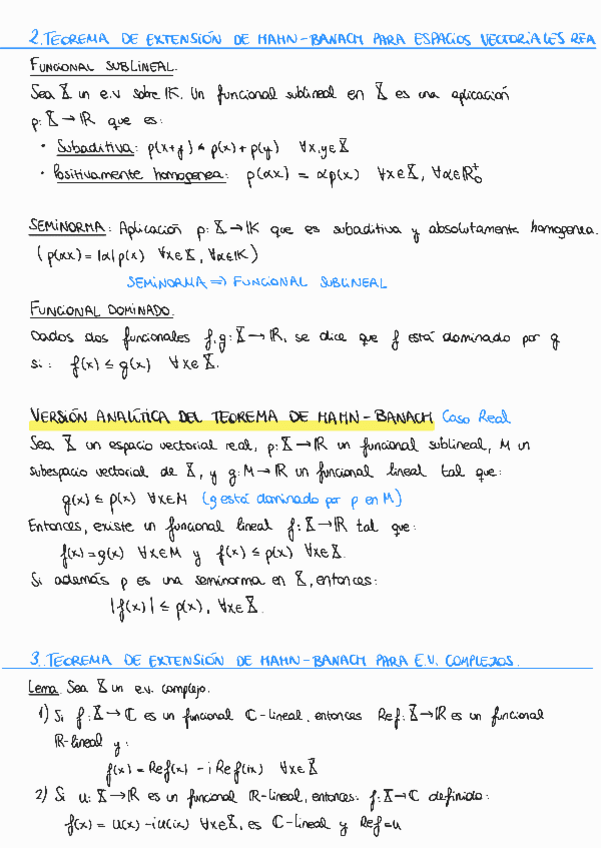 2. TEOREMA DE EXTENSIÓN DE HAHN-BANACH PARA ESPACIOS VECTORIALES REA
FUNCIONAL SUBLINEAL.
Sea X un e.v sobre IK. Un funcional sublineal en X es una aplicación
p: X → IR que es:
• Subaditiva: p(x+y) ≤ p(x) + p(y) ∀x,y ∈ X
• Positivamente homogenea: p(αx) = αp(x) ∀x ∈ X, ∀α ∈ IR₀⁺
SEMINORMA: Aplicación p: X → IK que es subaditiva y absolutamente homogenea.
(p(αx) = |α| p(x) ∀x ∈ X, ∀α ∈ IK)
SEMINORMA ⇒ FUNCIONAL SUBLINEAL
FUNCIONAL DOMINADO.
Dados dos funcionales f,g: X → IR, se dice que f está dominado por g
si: f(x) ≤ g(x) ∀x ∈ X.
VERSIÓN ANALÍTICA DEL TEOREMA DE HAHN-BANACH Caso Real
Sea X un espacio vectorial real, p: X → IR un funcional sublineal, M un
subespacio vectorial de X, y g: M → IR un funcional lineal tal que:
g(x) ≤ p(x) ∀x ∈ M (g está dominado por p en M)
Entonces, existe un funcional lineal f: X → IR tal que:
f(x) = g(x) ∀x ∈ M y f(x) ≤ p(x) ∀x ∈ X.
Si además p es una seminorma en X, entonces:
|f(x)| ≤ p(x), ∀x ∈ X.
3. TEOREMA DE EXTENSIÓN DE HAHN-BANACH PARA E.V. COMPLEJOS.
Lema. Sea X un e.v. complejo.
1) Si f: X → ℂ es un funcional ℂ-lineal, entonces Re f: X → IR es un funcional
IR-lineal y:
f(x) = Re f(x) - i Re f(ix) ∀x ∈ X
2) Si u: X → IR es un funcional IR-lineal, entonces: f: X → ℂ definido:
f(x) = u(x) - iu(ix) ∀x ∈ X, es ℂ-lineal y Re f = u